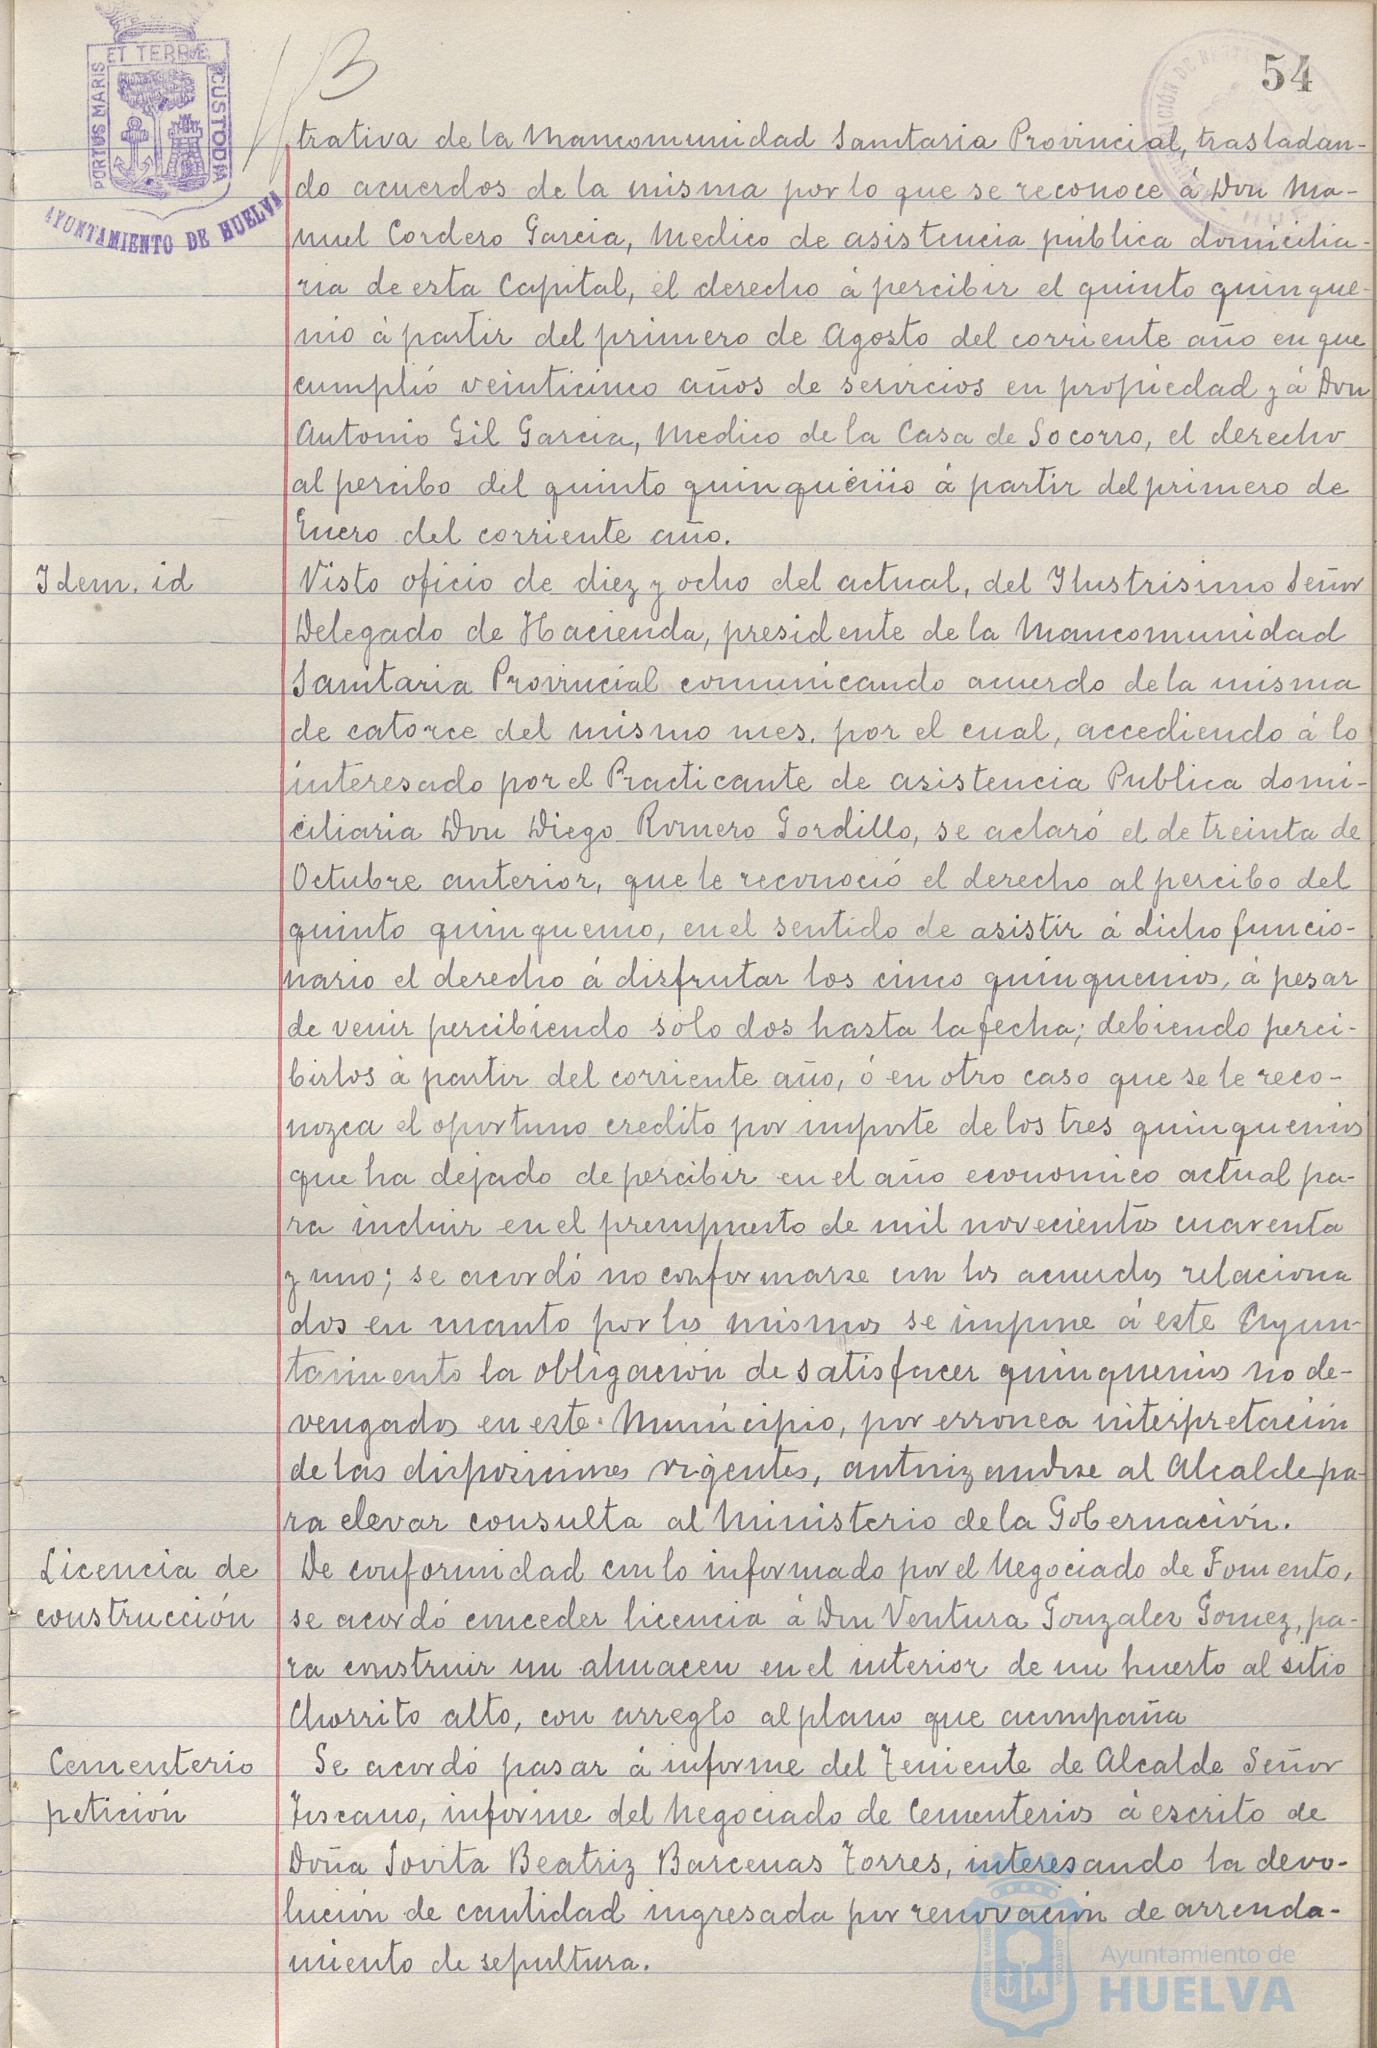 54
PORTUS MARIS ET TERRE CUSTODIA
AYUNTAMIENTO DE HUELVA
trativa de la Mancomunidad Sanitaria Provincial, trasladan-
do acuerdos de la misma por lo que se reconoce á Don Ma-
nuel Cordero Garcia, Medico de asistencia pública domicilia-
ria de esta Capital, el derecho á percibir el quinto quinque-
nio á partir del primero de Agosto del corriente año en que
cumplió veinticinco años de servicios en propiedad y á Don
Antonio Gil Garcia, Medico de la Casa de Socorro, el derecho
al percibo del quinto quinquenio á partir del primero de
Enero del corriente año.
Idem. id
Visto oficio de diez y ocho del actual, del Ilustrisimo Señor
Delegado de Hacienda, presidente de la Mancomunidad
Sanitaria Provincial comunicando acuerdo de la misma
de catorce del mismo mes. por el cual, accediendo á lo
interesado por el Practicante de asistencia Publica domi-
ciliaria Don Diego Romero Gordillo, se aclaró el de treinta de
Octubre anterior, que le reconoció el derecho al percibo del
quinto quinquenio, en el sentido de asistir á dicho funcio-
nario el derecho á disfrutar los cinco quinquenios, á pesar
de venir percibiendo sólo dos hasta la fecha; debiendo perci-
birlos á partir del corriente año, ó en otro caso que se le reco-
nozca el oportuno credito por importe de los tres quinquenios
que ha dejado de percibir en el año economico actual pa-
ra incluir en el presupuesto de mil novecientos cuarenta
y uno; se acordó no conformarse con los acuerdos relaciona
dos en cuanto por los mismos se impone á este Ayun-
tamiento la obligación de satisfacer quinquenios no de-
vengados en este Municipio, por erronea interpretación
de las disposiciones vigentes, autorizandose al Alcalde pa-
ra elevar consulta al Ministerio de la Gobernación.
Licencia de
construcción
De conformidad con lo informado por el Negociado de Fomento,
se acordó conceder licencia á Don Ventura Gonzalez Gomez, pa-
ra construir un almacen en el interior de un huerto al sitio
Chorrito alto, con arreglo al plano que acompaña
Cementerio
petición
Se acordó pasar á informe del Teniente de Alcalde Señor
Toscano, informe del Negociado de Cementerios á escrito de
Doña Jovita Beatriz Barcenas Torres, interesando la devo-
lución de cantidad ingresada por renovación de arrenda-
miento de sepultura.
Ayuntamiento de
HUELVA